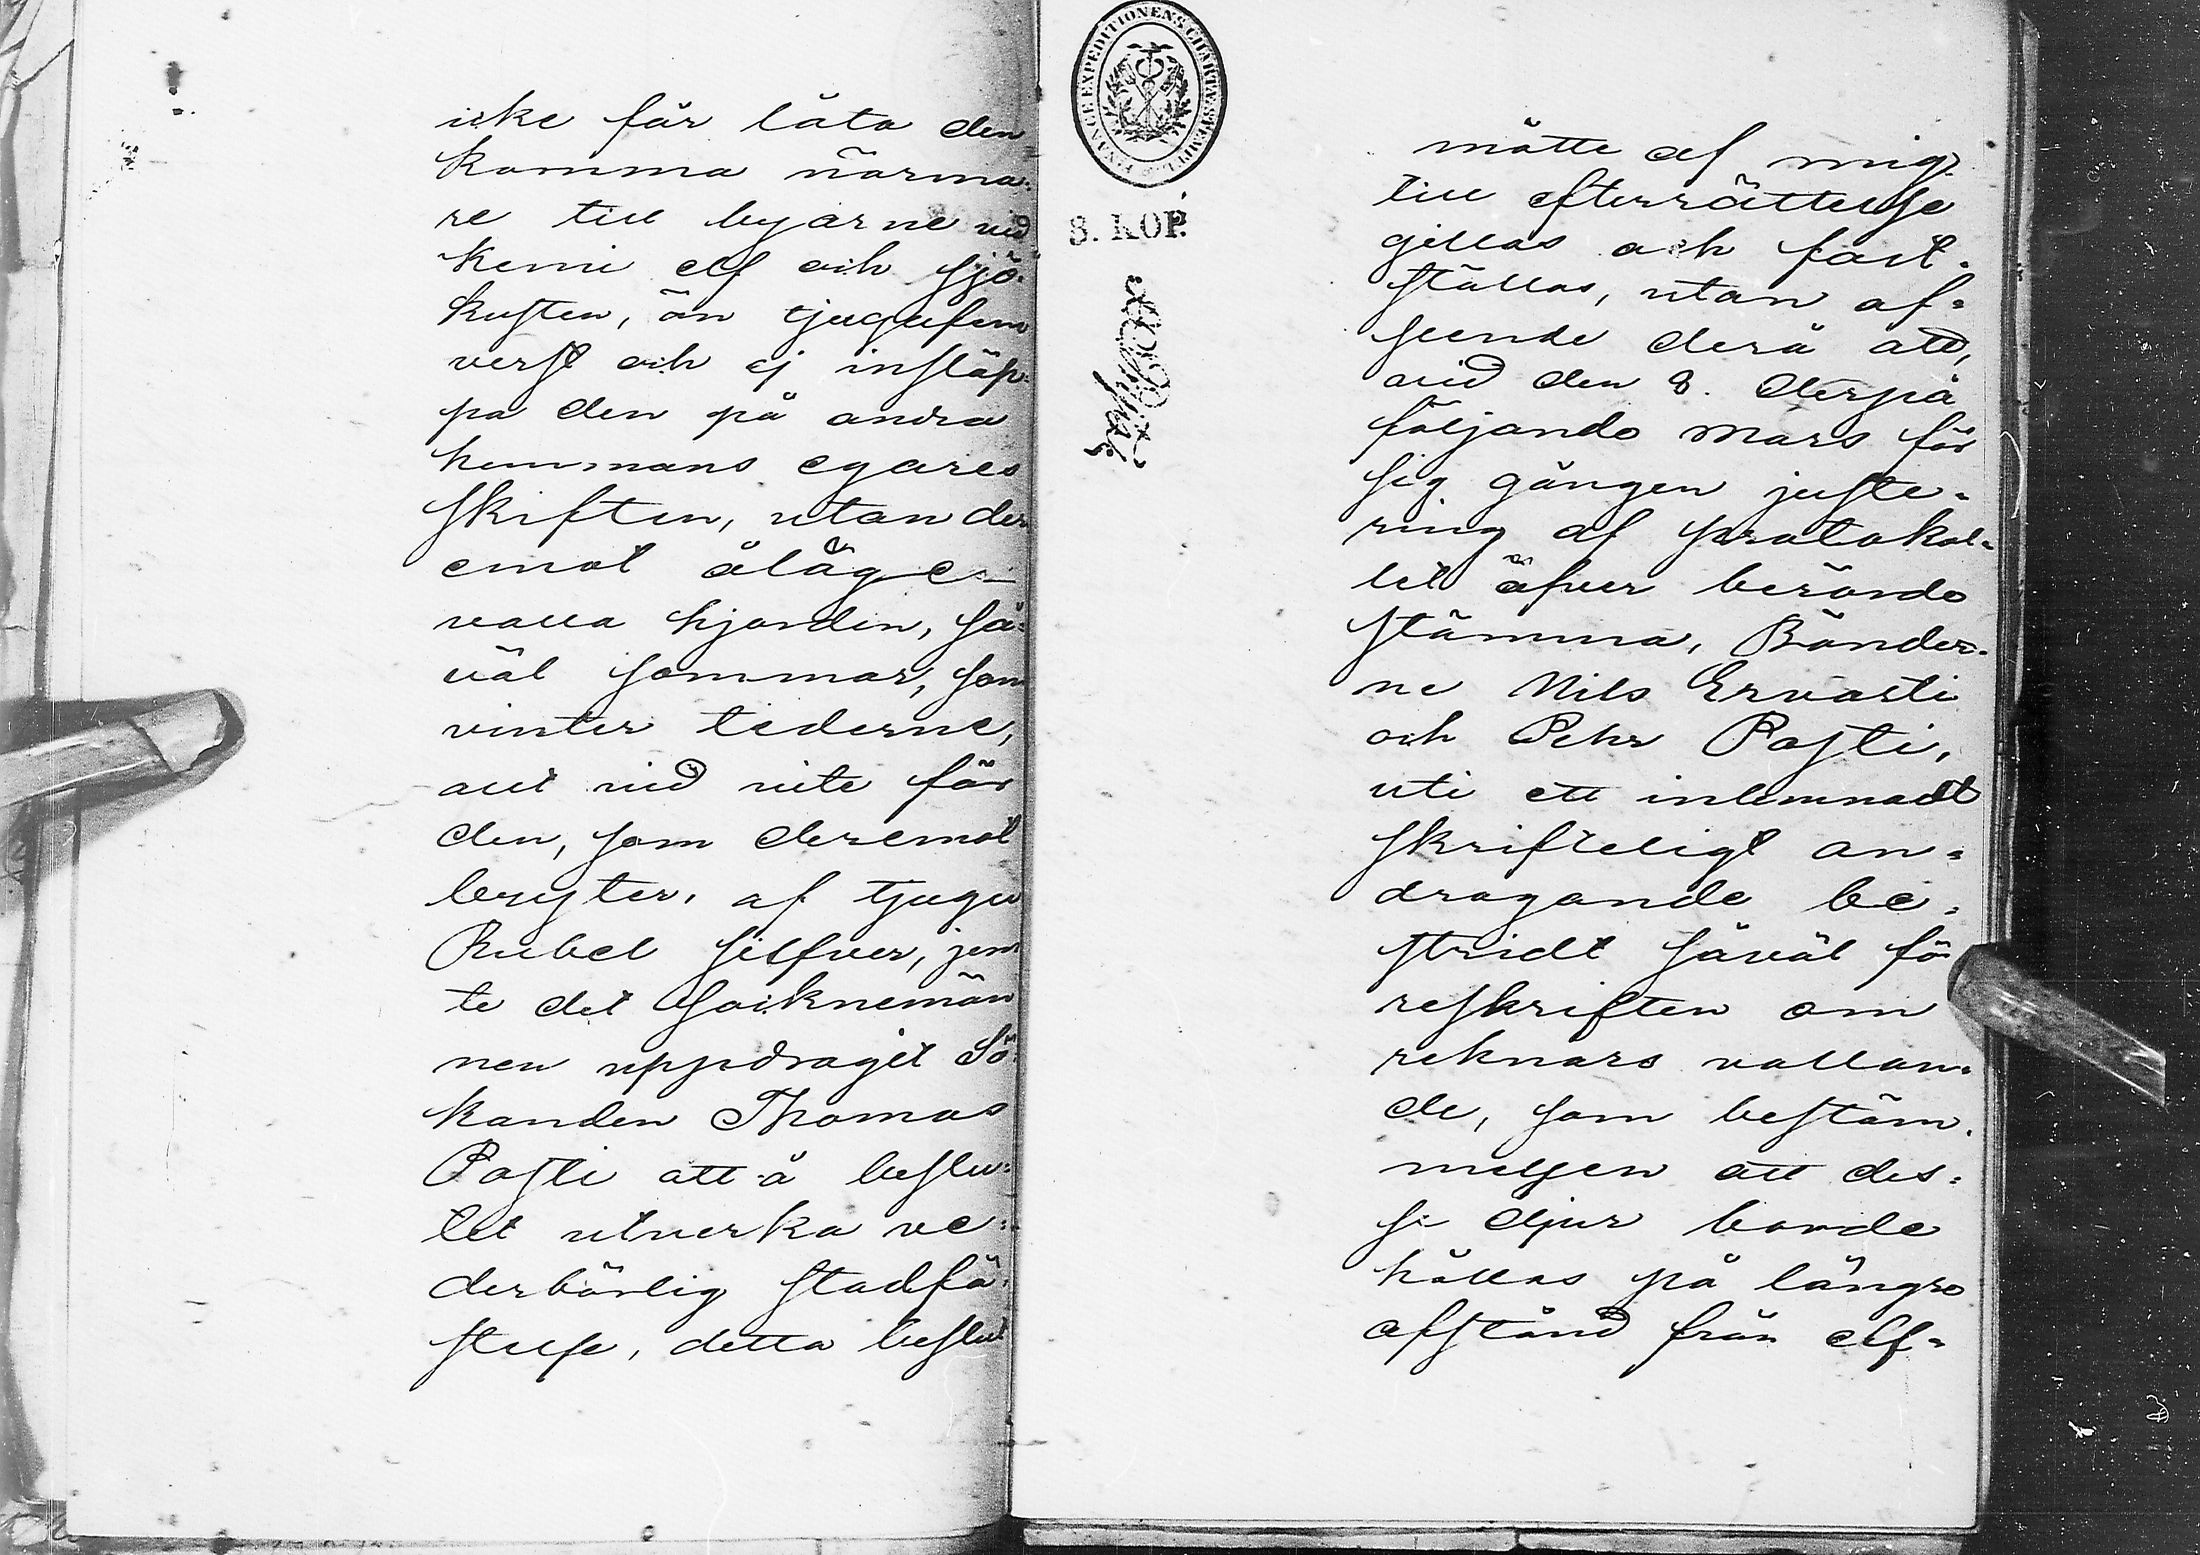 icke får låta den
komma närma-
re till byarne vid
Kemi elf och sjö-
kusten, än tjugufem
verst och ej insläp-
pa den på andra
hemmans egares
skiften, utan der-
emot ålåge
valla hjorden, så-
väl sommar, som
vinter tederne,
allt vid vite för
den, som deremot
bryter, af tjugu
Rubel silfver, jem-
te det Socknemän
nen uppdragit Sö-
kanden Thomas
Posti att å beslu-
tet utverka ve-
derbörlig stadfä-
stelse, detta beslut
FINANCE EXPEDITIONENS CHARTÆ STEMPEL
8. KOP.
måtte af mig
till efterrättelse
gillas och fast-
ställas, utan af-
seende derå att,
vid den 8. derpå
följande Mars för
sig gången juste-
ring af protokol-
let öfver berörde
stämma, Bönder-
ne Nils Ervasti
och Pehr Posti,
uti ett inlemnadt
skrifteligt an-
dragande be-
stridt såväl fö-
reskriften om
renars vallan-
de, som bestäm-
melsen att des-
se djur borde
hållas på längre
afstånd från elf-